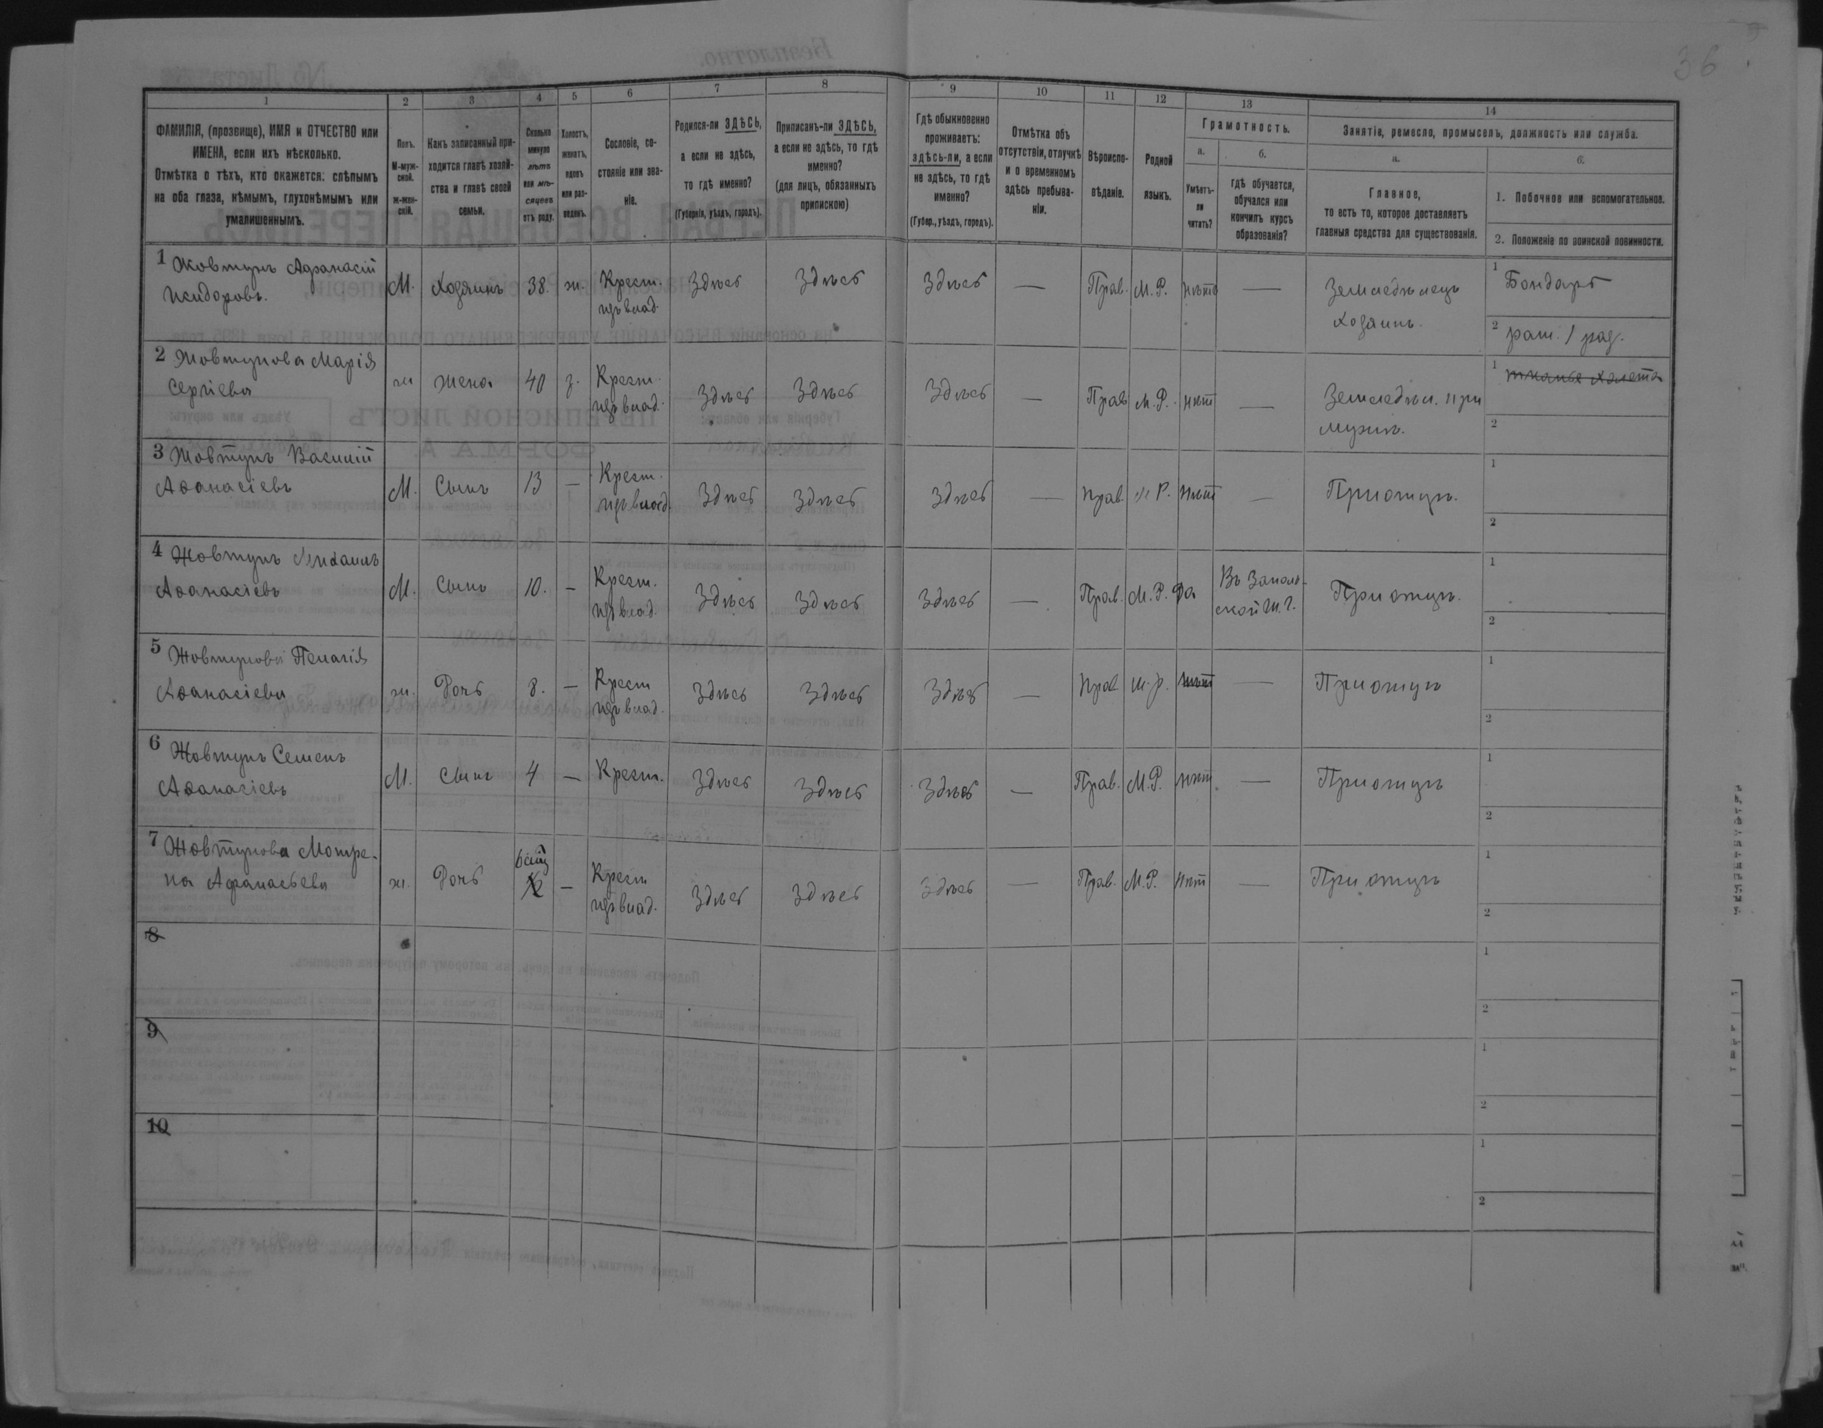 36
1 2 3 4 5 6 7 8 9 10 11 12 13 14
ФАМИЛІЯ, (прозвище), ИМЯ и ОТЧЕСТВО или ИМЕНА, если ихъ нѣсколько.
Отмѣтка о тѣхъ, кто окажется: слѣпымъ на оба глаза, нѣмымъ, глухонѣмымъ или умалишеннымъ.
Полъ. М-мужской. ж-женскій.
Какъ записанный приходится главѣ хозяйства и главѣ своей семьи.
Сколько минуло лѣтъ или мѣсяцевъ отъ роду.
Холостъ, женатъ, вдовъ или разведенъ.
Сословіе, состояніе или званіе.
Родился-ли ЗДѢСЬ, а если не здѣсь, то гдѣ именно?
(Губернія, уѣздъ, городъ).
Приписанъ-ли ЗДѢСЬ, а если не здѣсь, то гдѣ именно?
(для лицъ, обязанныхъ припискою)
Гдѣ обыкновенно проживаетъ: здѣсь-ли, а если не здѣсь, то гдѣ именно?
(Губер., уѣздъ, городъ).
Отмѣтка объ отсутствіи, отлучкѣ и о временномъ здѣсь пребываніи.
Вѣроисповѣданіе.
Родной языкъ.
Грамотность.
а. Умѣетъ-ли читать?
б. гдѣ обучается, обучался или кончилъ курсъ образованія?
Занятіе, ремесло, промыселъ, должность или служба.
а. Главное, то есть то, которое доставляетъ главныя средства для существованія.
б.
1. Побочное или вспомогательное.
2. Положеніе по воинской повинности.
1 Жовтунъ Афанасій Исидоровъ. М. Хозяинъ 38. ж. Крест. изъ влад. Здѣсь Здѣсь Здѣсь — Прав. М. Р. нѣтъ — Земледѣлецъ хозяинъ. 1 Бондарь
2 рат. 1 раз.
2 Жовтунова Марія Сергіева ж жена 40 з. Крест. изъ влад. Здѣсь Здѣсь Здѣсь Прав М. Р. нѣт — Земледѣл. при мужѣ. 1
2
3 Жовтунъ Василій Аѳанасіевъ М. Сынъ 13 — Крест. изъ влад. Здѣсь Здѣсь Здѣсь — Прав. М Р. Нѣт — При отцѣ. 1
2
4 Жовтунъ Михаилъ Аѳанасіевъ М. Сынъ 10. — Крест. изъ влад. Здѣсь Здѣсь Здѣсь — Прав. М. Р. Да При отцѣ. 1
2
5 Жовтунова Пелагія Аѳанасіева ж. Дочь 8. — Крест изъ влад. Здѣсь Здѣсь Здѣсь — Прав М. Р. нѣт — При отцѣ 1
2
6 Жовтунъ Семенъ Аѳанасіевъ М. сынъ 4 — Крест. Здѣсь Здѣсь Здѣсь — Прав. М. Р. нѣт — При отцѣ 1
2
7 Жовтунова Мотрена Афанасьева ж. Дочь — Крест изъ влад. Здѣсь Здѣсь Здѣсь — Прав. М. Р. Нѣт — При отцѣ 1
2
8 1
2
9 1
2
10 1
2